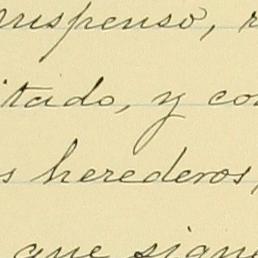 suspenso,
itado, y con
s herederos,
que signe